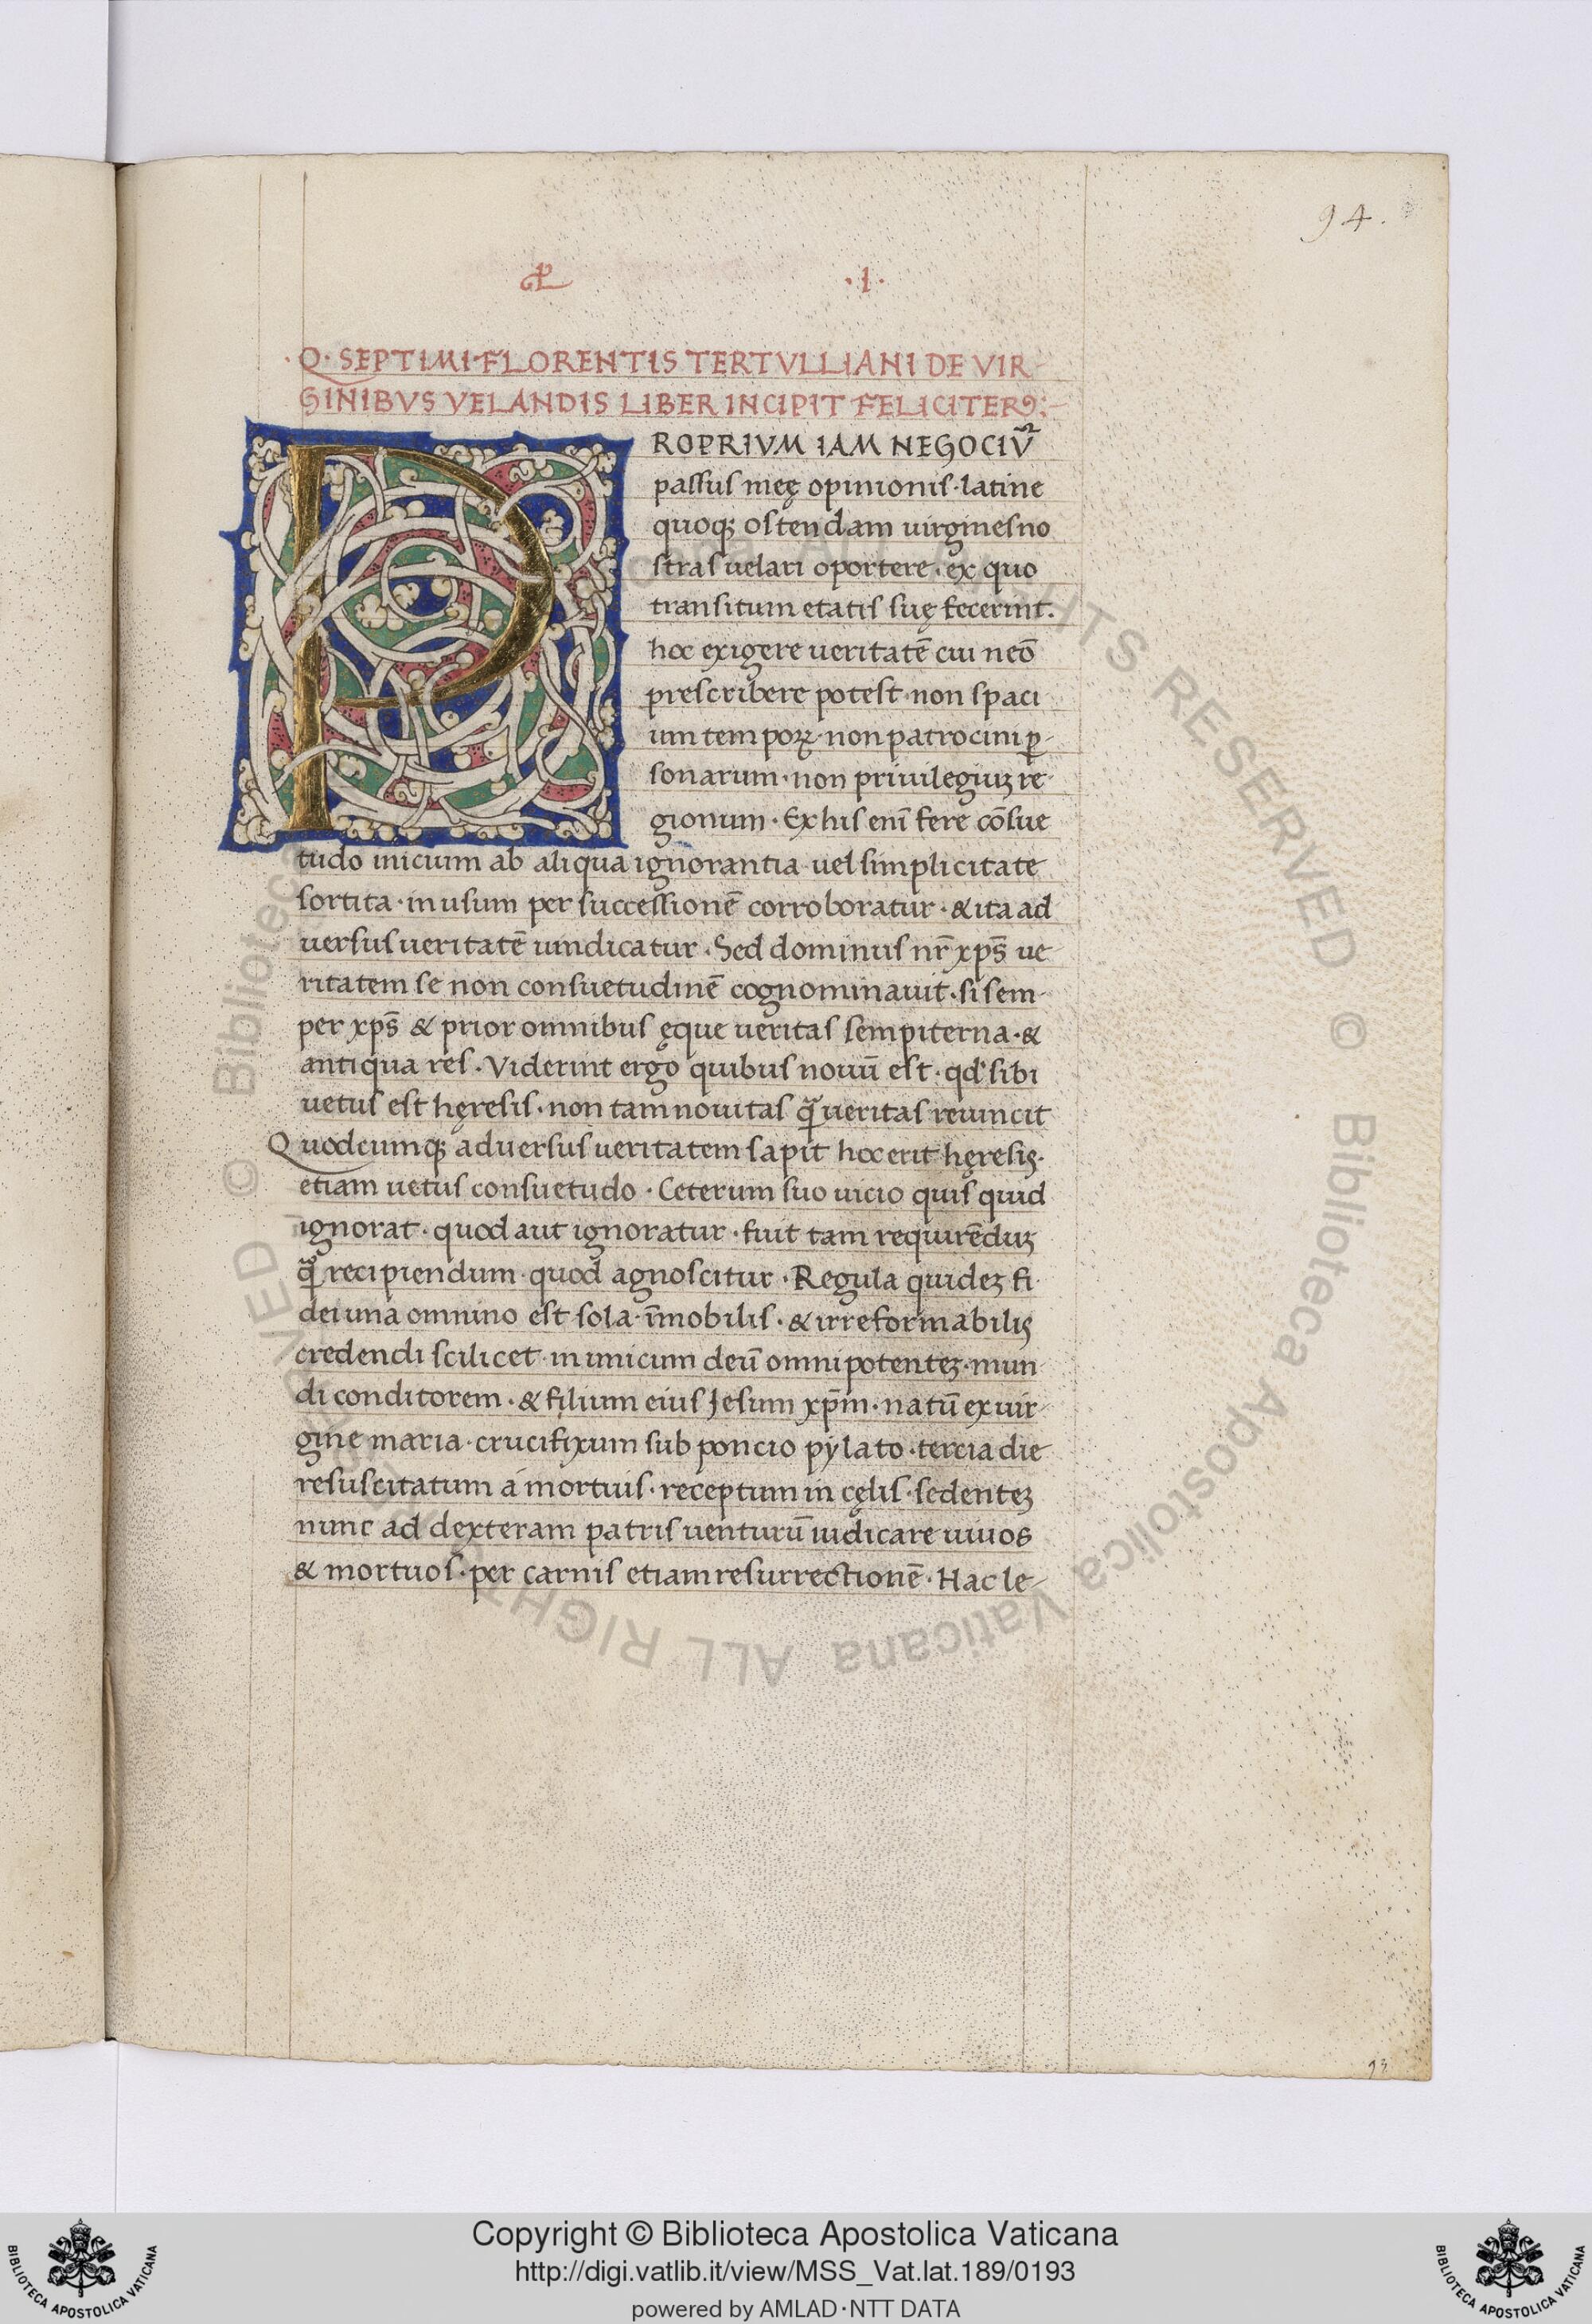 94.
·I·
·Q· SEPTIMI·FLORENTIS TERTVLLIANI DE VIR-
GINIBVS VELANDIS LIBER INCIPIT FELICITER
PROPRIVM IAM NEGOCIṼ
passus meę opinionis·latine
quoq; ostendam uirgines no
stras uelari oportere·ex quo
transitum etatis suę fecerint·
hoc exigere ueritatē cui neō
prescribere potest·non spaci
um temporꝝ·non patrocini ꝑ-
sonarum·non priuilegiuꝫ re-
gionum·Ex his enī fere cōsue
tudo inicium ab aliqua ignorantia·uel simplicitate
sortita·in usum per successionē corroboratur·& ita ad
uersus ueritatē uindicatur·Sed dominus nr̄ xp̄s ue-
ritatem se non consuetudinē cognominauit·si sem-
per xp̄s & prior omnibus ęque ueritas sempiterna·&
antiqua res·Viderint ergo quibus nouū est·qd' sibi
uetus est hęresis·non tam nouitas q̃ ueritas reuincit
Quodcumq; aduersus ueritatem sapit hoc erit hęresis·
etiam uetus consuetudo·Ceterum suo uicio quis quid
ignorat·quod aut ignoratur·fuit tam requirēduꝫ
q̃ recipiendum·quod agnoscitur·Regula quideꝫ fi-
dei una omnino est sola·īmobilis·& irreformabilis
credendi scilicet·in unicum deū omnipotenteꝫ·mun-
di conditorem·& filium eius Jesum xp̄m·natū ex uir-
gine maria·crucifixum sub poncio pylato·tercia die
resuscitatum á mortuis·receptum in cęlis·sedenteꝫ
nunc ad dexteram patris uenturū iudicare uiuos
& mortuos·per carnis etiam resurrectionē·Hac le-
93
© Biblioteca Apostolica Vaticana ALL RIGHTS RESERVED © Biblioteca Apostolica Vaticana ALL RIGHTS RESERVED
Copyright © Biblioteca Apostolica Vaticana
http://digi.vatlib.it/view/MSS_Vat.lat.189/0193
powered by AMLAD·NTT DATA
BIBLIOTECA APOSTOLICA VATICANA
BIBLIOTECA APOSTOLICA VATICANA